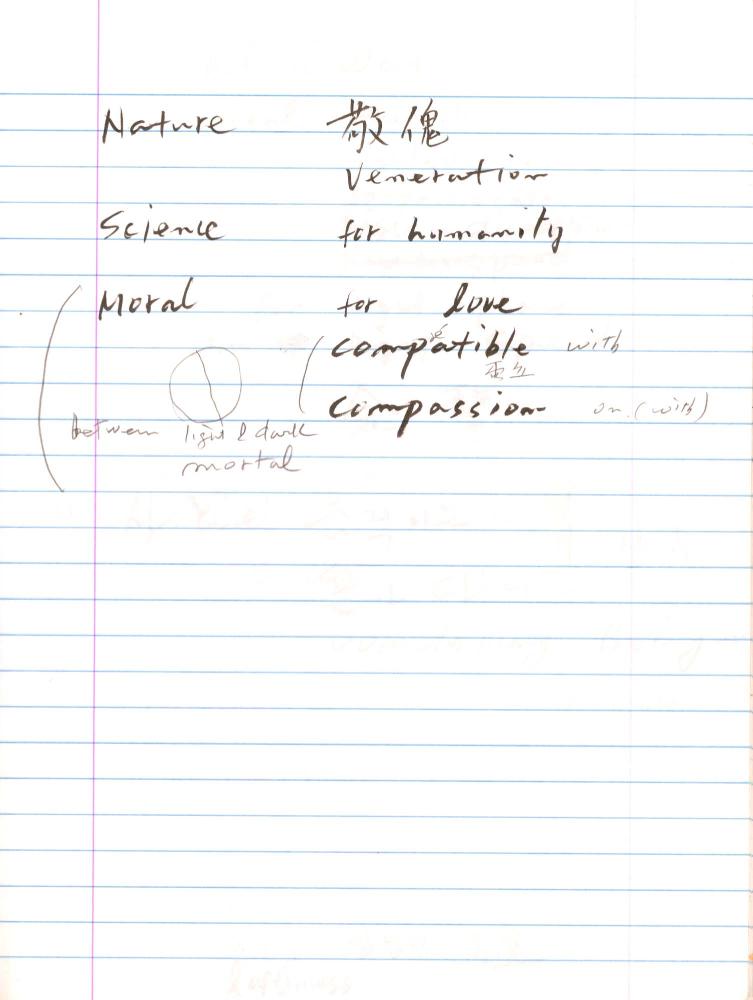 Nature
Veneration
Science for humanity
Moral for love
compatible with
compassion on (with)
between light & dark
mortal